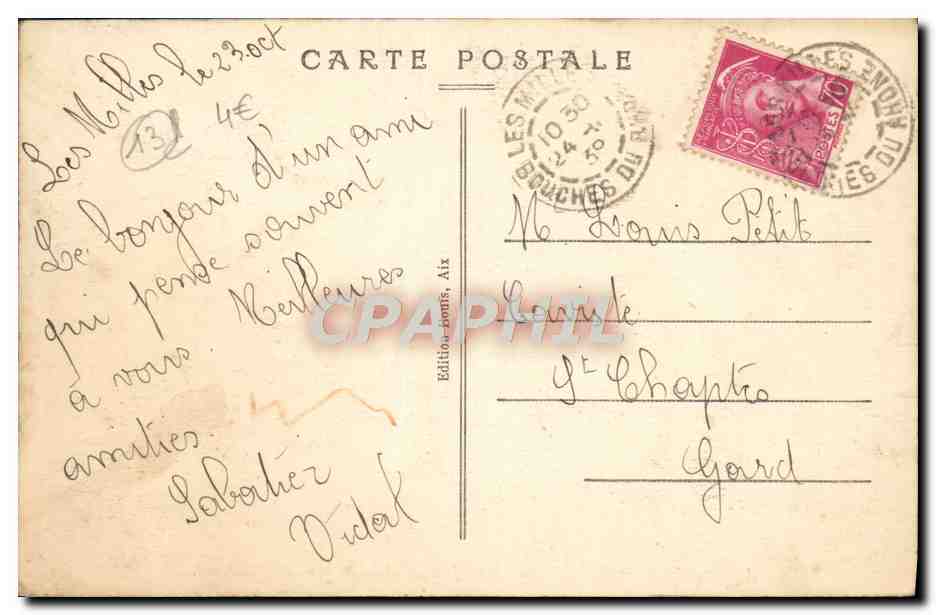 CARTE POSTALE
Les Milles le 23 oct
13
4€
Le bonjour d'un ami
qui pense souvent
à vous. Meilleures
amitiés.
Sabatier
Vidal
Edition Bouis, Aix
LES MILLES
10 30
24
BOUCHES DU RHONE
POSTES
70
M Louis Petit
Caviste
St Chaptes
Gard
CPAPHIL